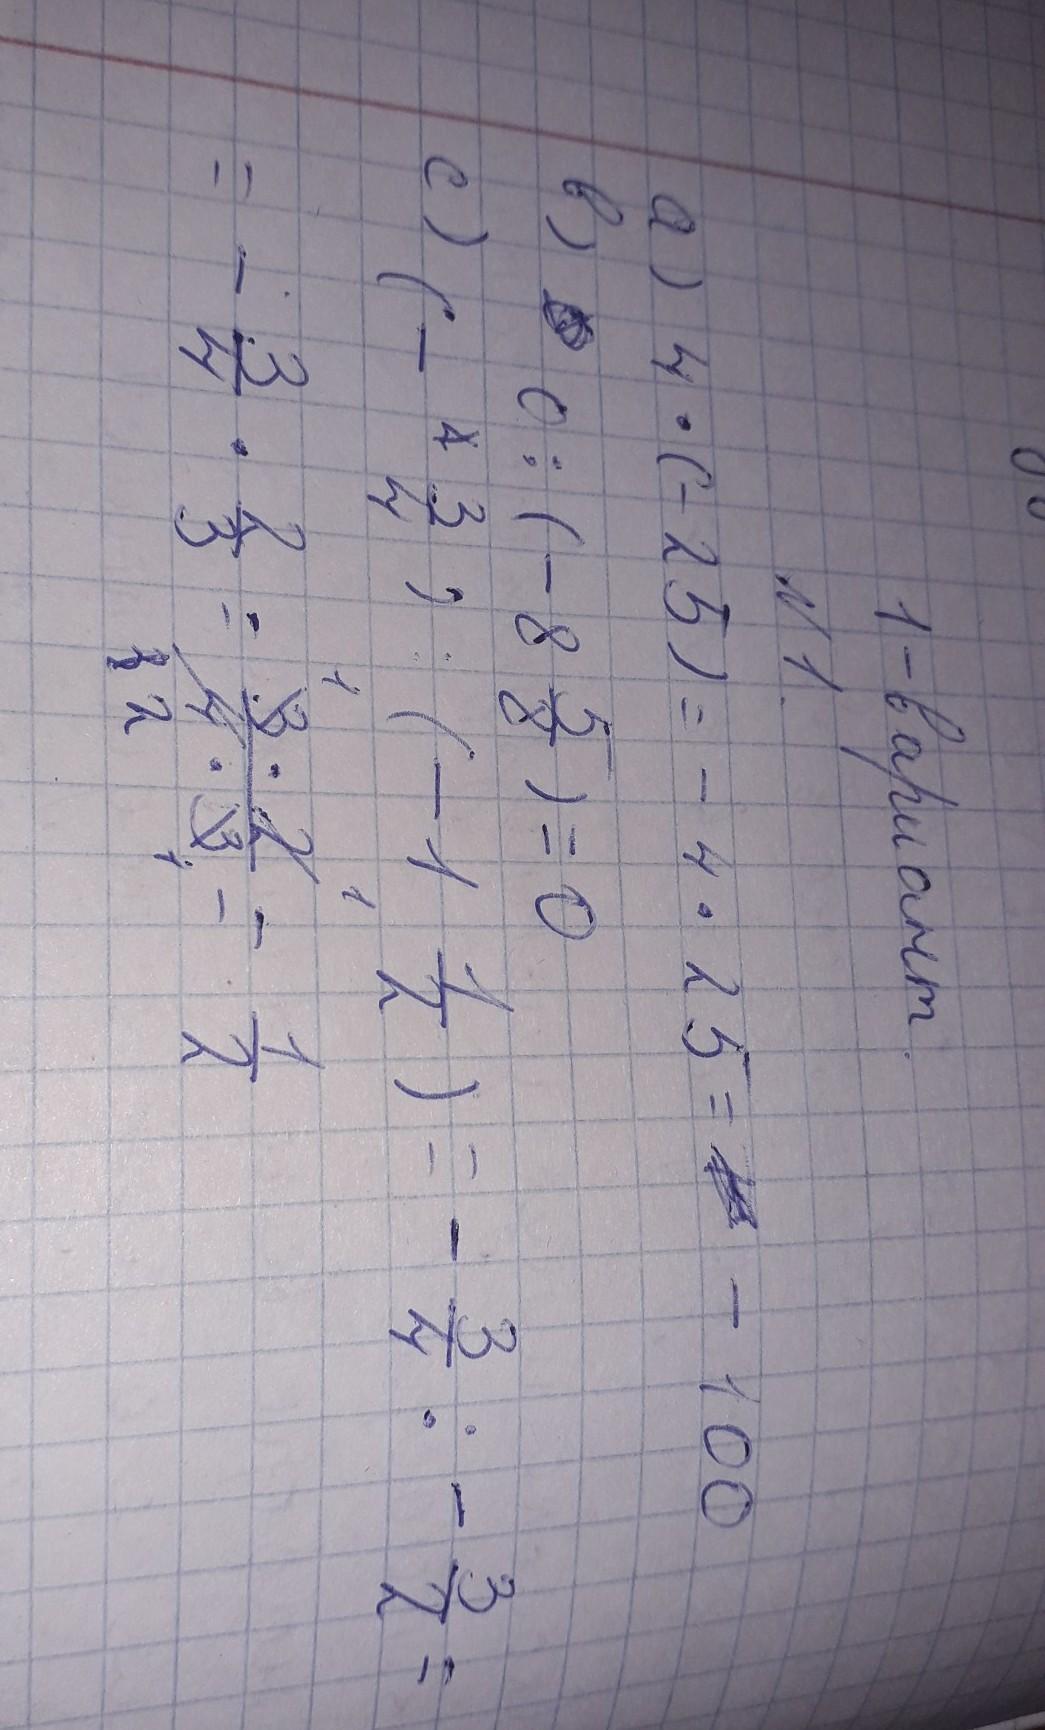 1-вариант.
№1.
а) 4·(-25)=-4·25=-100
в) 0:(-8 5/8)=0
с) (-3/4):(-1 1/2)=-3/4:-3/2=
=-3/4·2/3=3·2/4·3=1/2